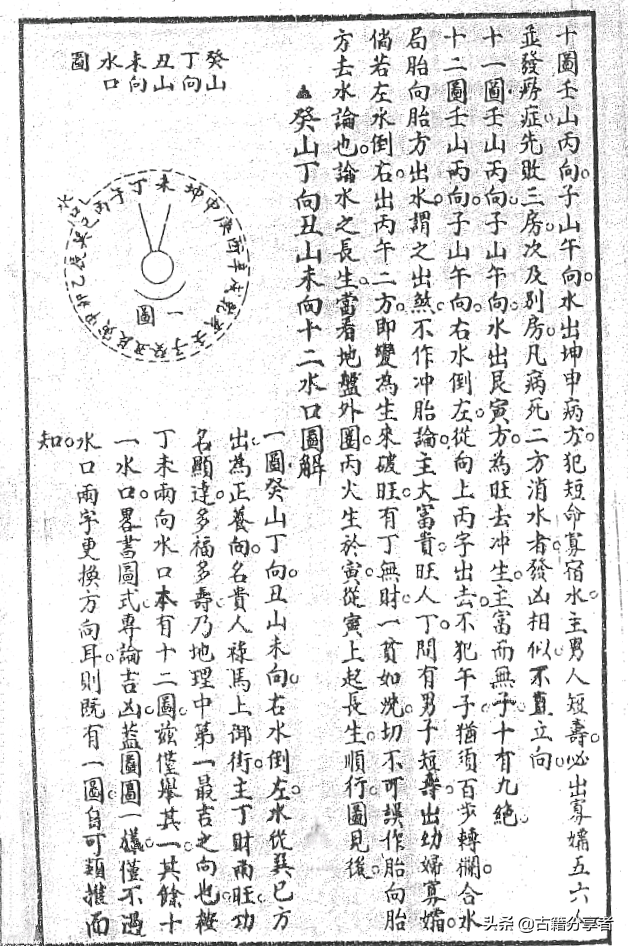 十圖壬山丙向子山午向水出坤申病方犯短命寡宿水主男人短壽必出寡婦五六人
並發癆症先敗三房次及別房凡病死二方消水者發凶相似不宜立向
十一圖壬山丙向子山午向水出艮寅方為旺去冲生主富而無子十有九絕
十二圖壬山丙向子山午向右水倒左從向上丙字出去不犯午子猶須百步轉欄合水
局胎向胎方出水謂之出煞不作冲胎論主大富貴旺人丁間有男子短壽出幼婦寡婦
倘若左水倒右出丙午二方即變為生來破旺有丁無財一貧如洗切不可誤作胎向胎
方去水論也論水之長生當看地盤外圈丙火生於寅從寅上起長生順行圖見後
▲癸山丁向丑山未向十二水口圖解
癸山
丁向
丑山
未向
水口
圖
未坤申庚酉辛戌乾亥壬子癸丑艮寅甲卯乙辰巽巳丙午丁
水口
一圖
一圖癸山丁向丑山未向右水倒左水從巽巳方
出為正養向名貴人祿馬上御街主丁財兩旺功
名顯達多福多壽乃地理中第一最吉之向也
丁未兩向水口本有十二圖茲僅舉其一其餘十
一水口畧書圖式專論吉凶蓋圖圖一樣僅不過
水口兩字更換方向耳則既有一圖自可類推而
知
头条 @古籍分享者